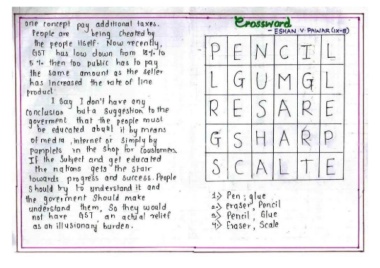 one concept pay additional taxes.
People are being cheated by
the people itself. Now recently,
GST has low down from 18% to
5 % then too public has to pay
the same amount as the seller
has increased the rate of the
product
I say I don't have any
conclusion but a suggestion to the
goverment that the people must
be educated about it by means
of media, internet or simply by
pamplets in the shop for customers.
If the Subject and get educated
the nations gets the stair
towards progress and success. People
should try to understand it and
the goverment should make
understand them, So they would
not have GST, an actual relief
as an illusionary burden.
Crossword
- ESHAN V. PAWAR (IX-B)
P E N C I L
L G U M G L
R E S A R E
G S H A R P
S C A L T E
1) Pen, glue
2) eraser, Pencil
3) Pencil, Glue
4) Eraser, Scale